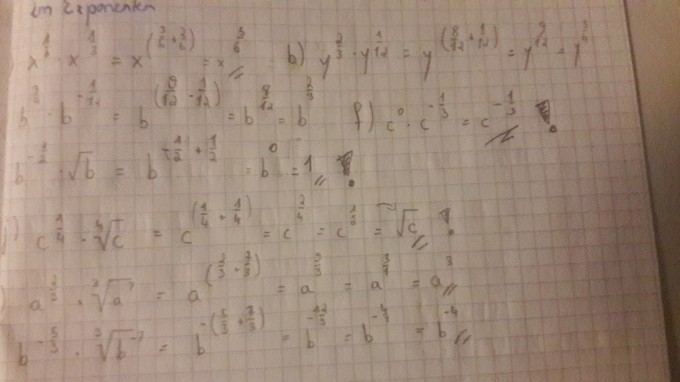 im Exponenten
x^(1/2) · x^(1/3) = x^(3/6 + 2/6) = x^(5/6) b) y^(2/3) · y^(1/12) = y^(8/12 + 1/12) = y^(9/12) = y^(3/4)
b^(3/4) · b^(-1/12) = b^(9/12 - 1/12) = b^(8/12) = b^(2/3) f) c^0 · c^(-1/3) = c^(-1/3) !
b^(-1/2) · √b = b^(-1/2 + 1/2) = b^0 = 1 !
c^(1/4) · ⁴√c = c^(1/4 + 1/4) = c^(2/4) = c^(1/2) = √c !
· ³√a = a = a = a = a^3
b^(-5/3) · ³√b^-7 = b^-(5/3 + 7/3) = b^(-12/3) = b = b^-4